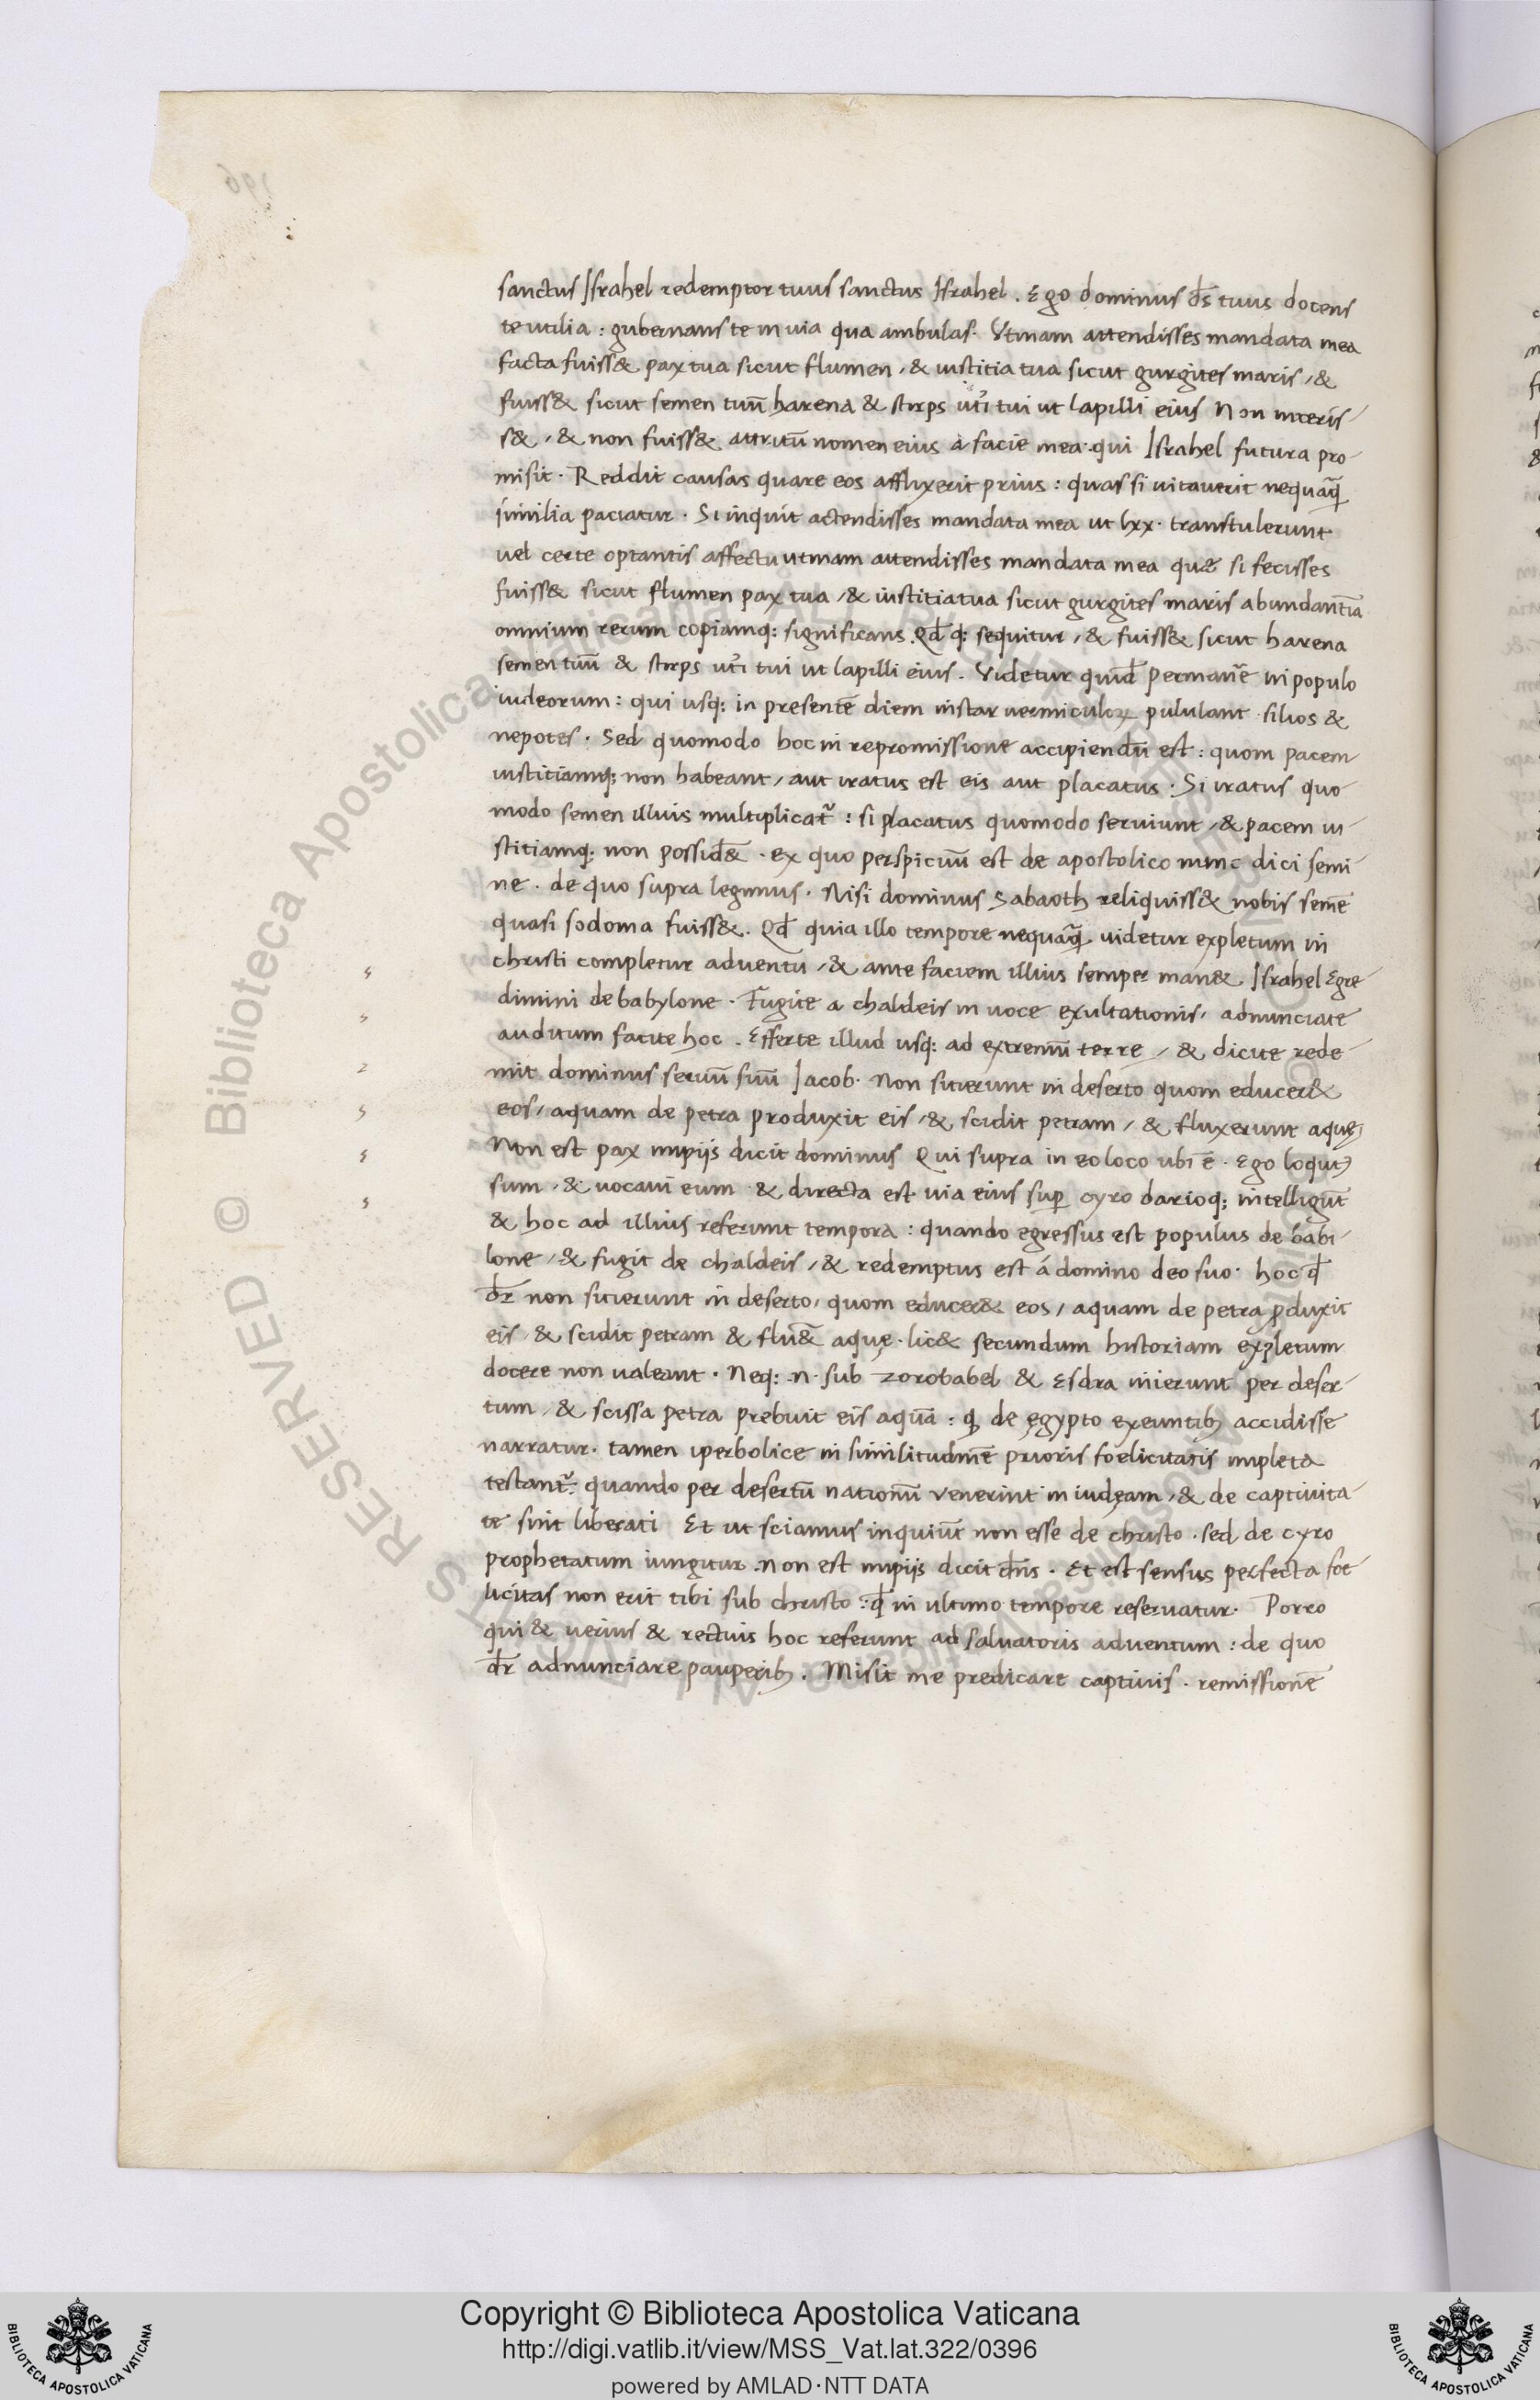 sanctus Israhel redemptor tuus sanctus Israhel . Ego dominus ds̄ tuus docens
te utilia : gubernans te in uia qua ambulas . Vtinam attendisses mandata mea
facta fuiss& pax tua sicut flumen , & iustitia tua sicut gurgites maris , &
fuiss& sicut semen tuū harena & stirps ut̄i tui ut lapilli eius Non interis-
s& , & non fuiss& attritū nomen eius a facie mea . qui Israhel futura pro-
misit . Reddit causas quare eos afflixerit prius : quas si uitauerit nequaq̄
similia paciatur . Si inquit actendisses mandata mea ut lxx . transtulerunt
uel certe optantis affectu utinam attendisses mandata mea quæ si fecisses
fuiss& sicut flumen pax tua , & iustitia tua sicut gurgites maris abundant̄ia
omnium rerum copiamq; significans . Qd̄ q; sequitur , & fuiss& sicut harena
semen tuū & stirps ut̄i tui ut lapilli eius . Videtur quid̄ permanē in populo
iudeorum : qui usq; in presentē diem instar uermiculoꝝ pululant filios &
nepotes . Sed quomodo hoc in repromissione accipiendū est : quom pacem
iustitiamq; non habeant , aut iratus est eis aut placatus . Si iratus quo
modo semen illius multiplicat᷑ : si placatus quomodo seruiunt , & pacem iu-
stitiamq; non possid&̄ . ex quo perspicuū est de apostolico nunc dici semi-
ne . de quo supra legimus . Nisi dominus Sabaoth reliquiss& nobis semē
quasi sodoma fuiss& . Qd̄ quia illo tempore nequaq̄ uidetur expletum in
christi completur aduentu , & ante faciem illius semper man& Israhel Egre-
dimini de babylone . Fugite a chaldeis in uoce exultationis , adnunciate
auditum facite hoc . Efferte illud usq; ad extremū terre , & dicite rede-
mit dominus seruū suū Iacob . Non sitierunt in deserto quom educer&
eos , aquam de petra produxit eis , & scidit petram , & fluxerunt aquę
Non est pax impijs dicit dominus Qui supra in eo loco ubi ē . Ego loqutꝰ
sum , & uocaui eum & directa est uia eius suꝑ cyro darioq; intelligūt
& hoc ad illius referunt tempora : quando egressus est populus de babi-
lone , & fugit de chaldeis , & redemptus est á domino deo suo . hoc qd̄
dr̄ non sitierunt in deserto , quom educer& eos , aquam de petra ꝓduxit
eis , & scidit petram & flu&̄ aquę . lic& secundum historiam expletum
docere non ualeant . Neq; .n. sub zorobabel & Esdra inierunt per deser-
tum , & scissa petra prebuit eis aquā : qd̄ de ęgypto exeuntibꝫ accidisse
narratur . tamen iperbolice in similitudinē prioris foelicitatis impleta
testant᷑ . quando per desertū nationū venerint in iudęam , & de captiuita-
te sint liberati Et ut sciamus inquiūt non esse de christo . sed de cyro
prophetatum iungitur . non est impijs dicit dn̄s . Et est sensus perfecta foe-
licitas non erit tibi sub christo : qd̄ in ultimo tempore reseruatur . Porro
qui & uerius & rectius hoc referunt ad saluatoris aduentum : de quo
dr̄ adnunciare pauperibꝫ . Misit me predicare captiuis . remissionē
Copyright © Biblioteca Apostolica Vaticana
http://digi.vatlib.it/view/MSS_Vat.lat.322/0396
powered by AMLAD·NTT DATA
BIBLIOTECA APOSTOLICA VATICANA
BIBLIOTECA APOSTOLICA VATICANA